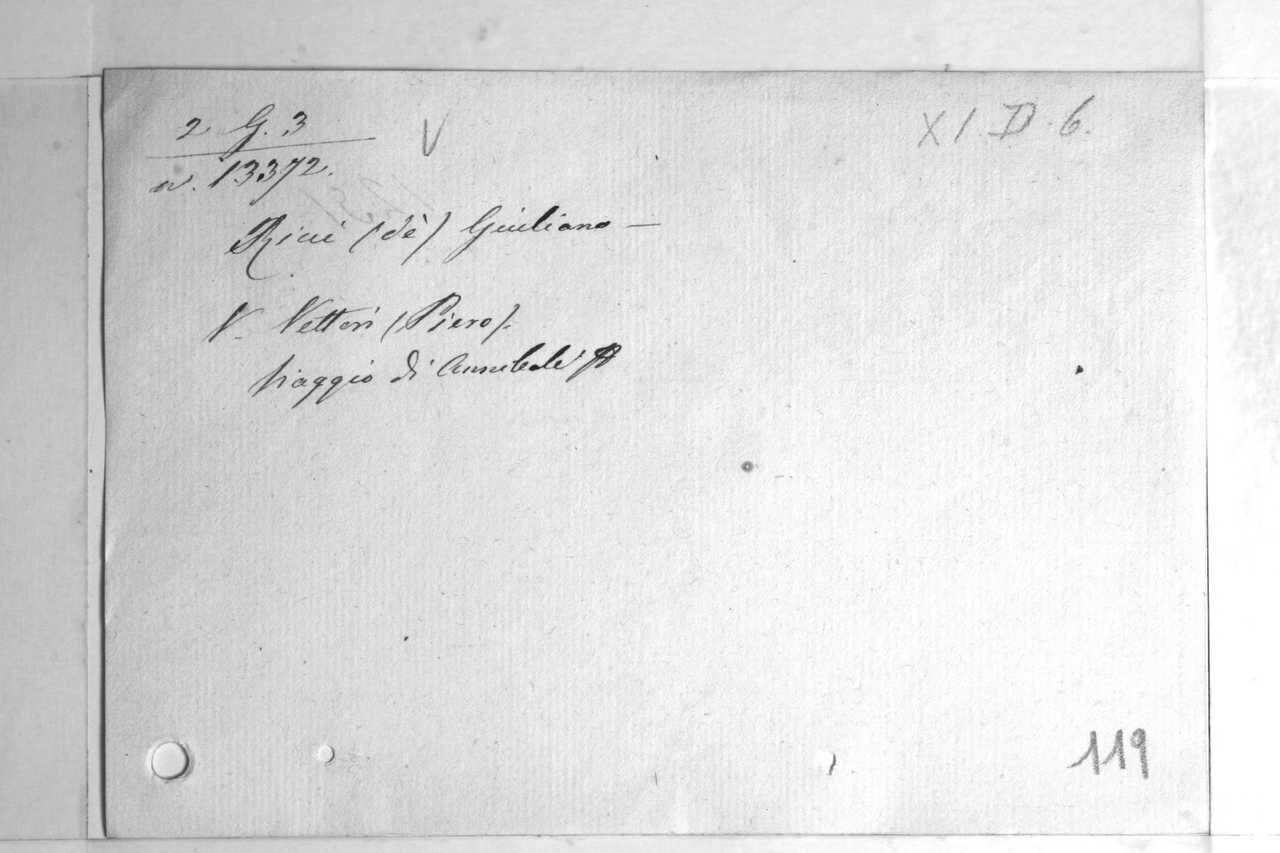 2 G. 3
V
XI. D. 6.
n. 13372.
Ricci (de') Giuliano —
V. Vettori (Piero).
Viaggio di Annibale
119